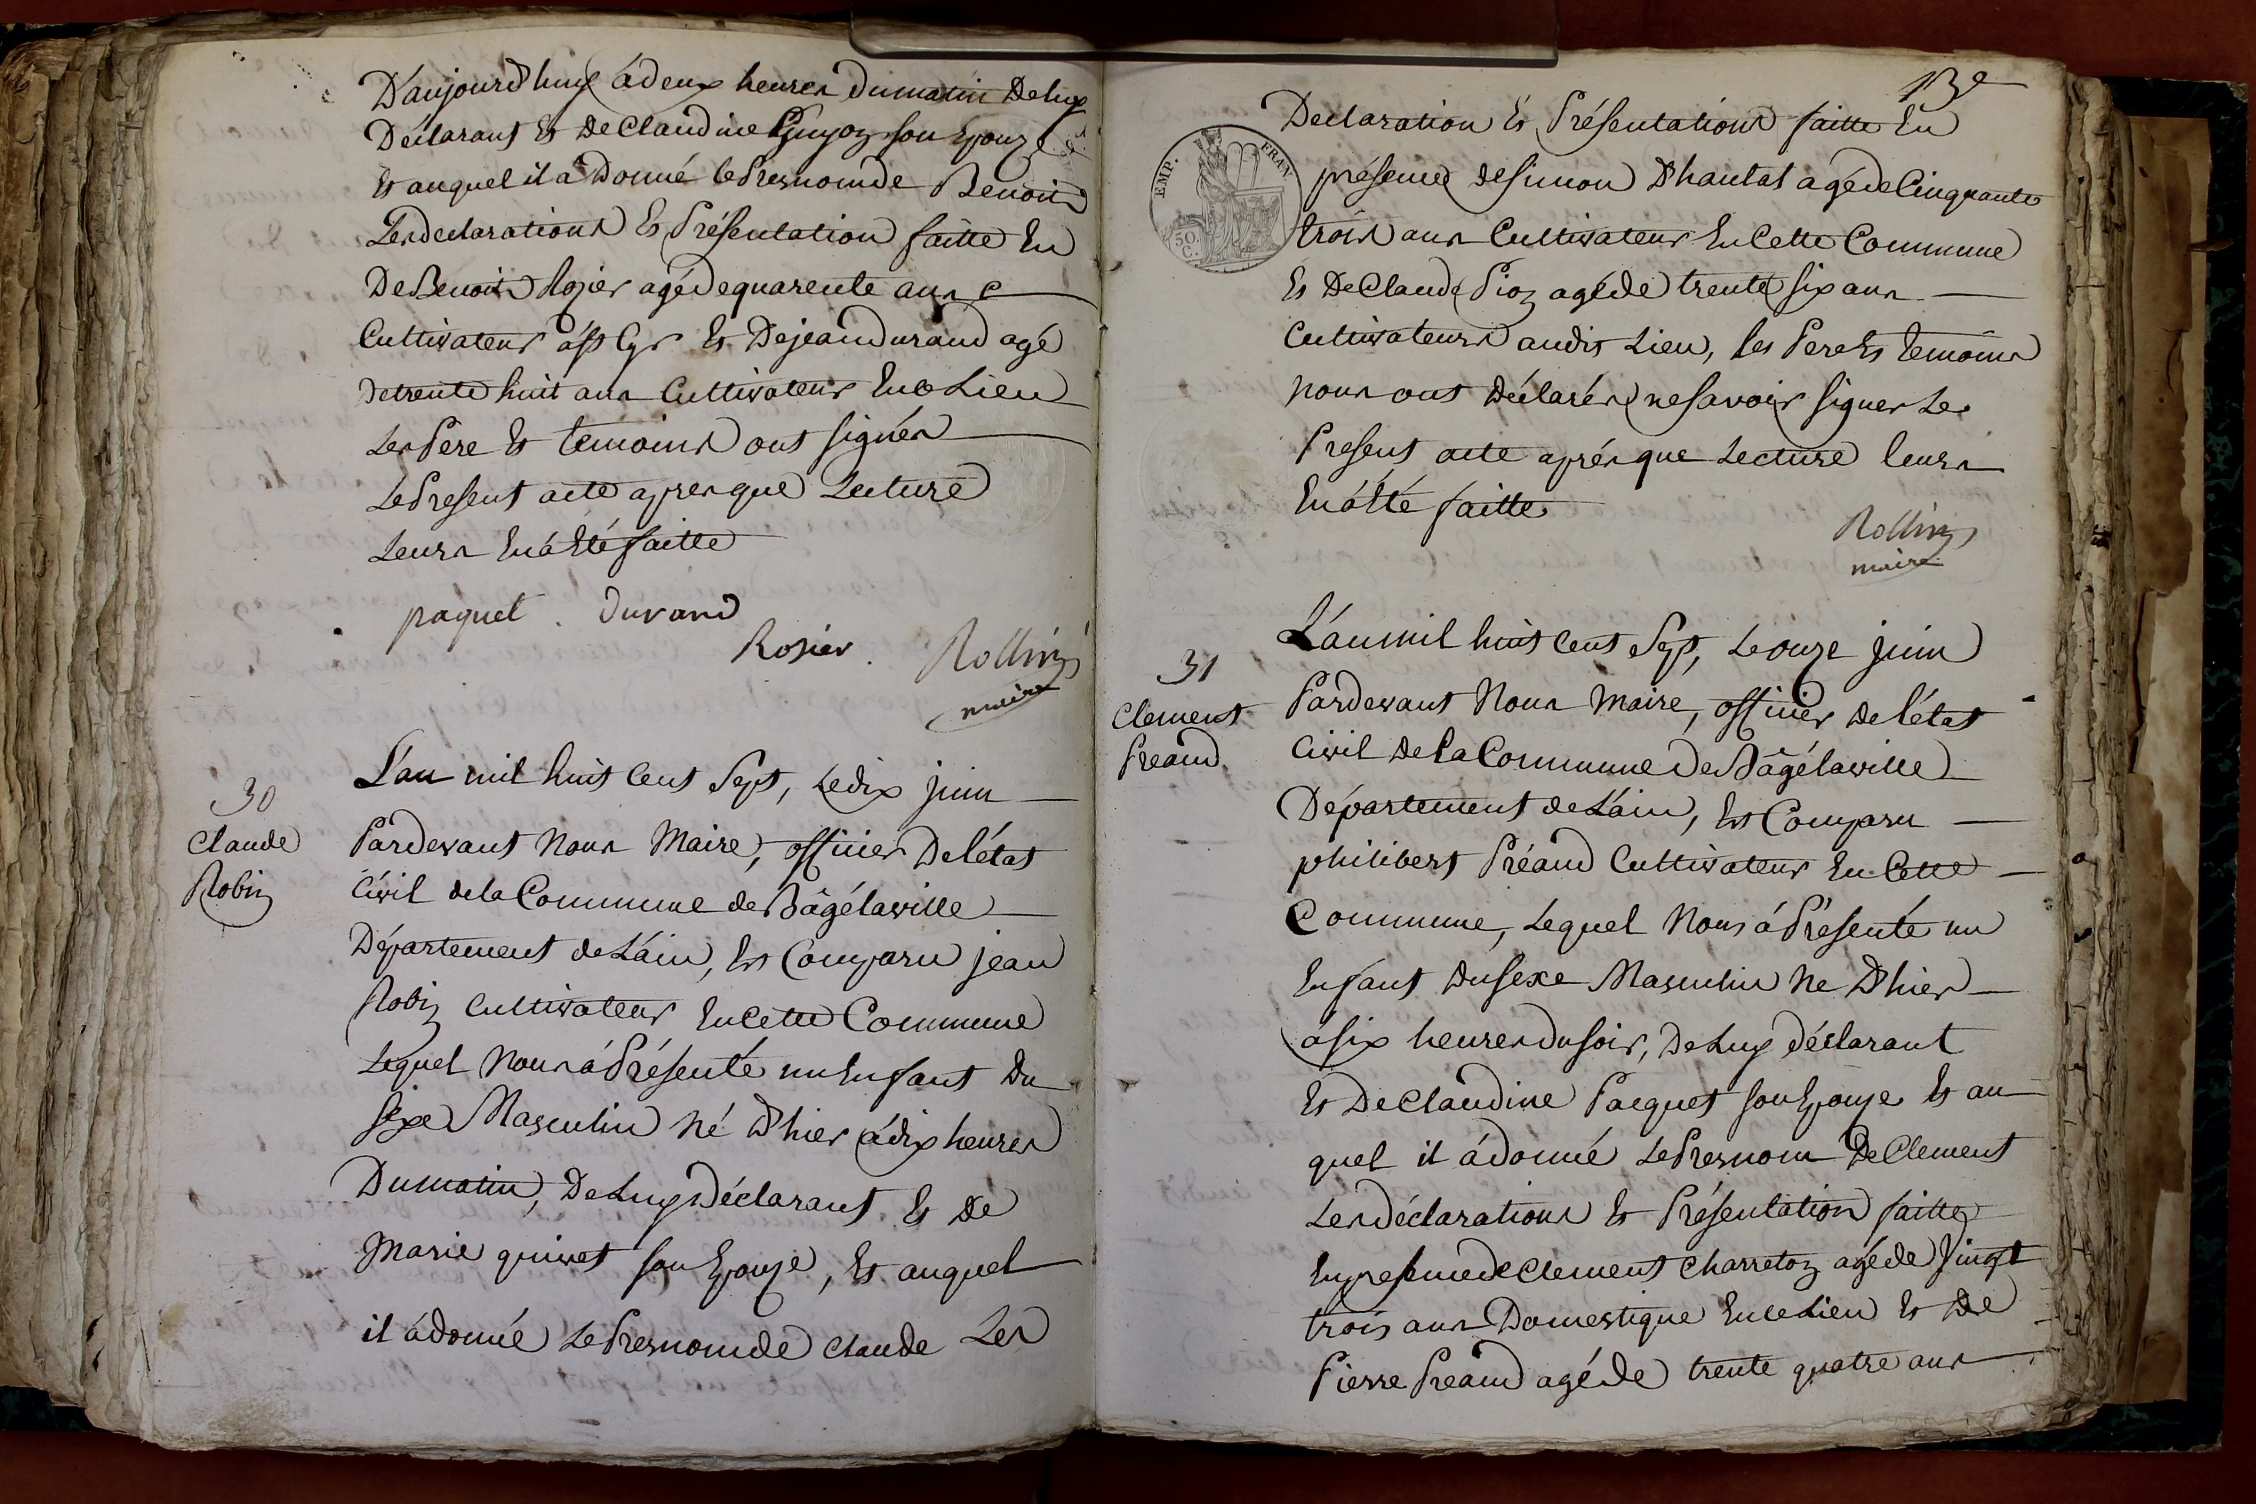 D'aujourd'huy à deux heures du matin De luy
Déclarant Et De Claudine Guyoz son Epouze
Et auquel il a Donné le Presnom de Benoit
Les declarations Et Présentation faitte En
De Benoit Rozier agé de quarente ans
Cultivateur à St Cyr Et De jean durand agé
de trente huit ans Cultivateur En ce Lieu
Les Pére Et temoins ont signés
Le Present acte apres que Lecture
Leurs En à Eté faitte
paquet . Durand
Rosier . Rollin
maire
30
Claude
Robin
L'an mil huit Cent Sept, Le dix juin
Pardevant Nous Maire, officier De l'état
Civil de la Commune de Bâgélaville
Département de L'ain, Est Comparu jean
Robin Cultivateur En Cette Commune
Lequel Nous à Présenté un Enfant Du
sexe Masculin Né D'hier à dix heures
Du matin, De Luy Déclarant Et De
Marie quivet son Epouze, Et auquel
il à donné Le Presnom de Claude Les
13e
Declaration Et Présentations faitte En
EMP. FRAN
50.
C.
présence de Simon D'hautal agé de Cinquante
trois ans Cultivateur En Cette Commune
Et De Claude Pioz agé de trente six ans
Cultivateurs audit Lieu, les Pere Et temoins
nous ont Déclarés ne savoir signer Le
Present acte aprés que Lecture leurs
En à Eté faitte
Rollin
maire
31
Clement
Preaud
L'an mil huit Cent Sept, Le onze juin
Pardevant Nous Maire, officier de l'état
Civil de la Commune de Bâgélaville
Département de L'ain, Est Comparu
philibert Préaud Cultivateur En Cette
Commune, Lequel Nous à Présenté un
Enfant du sexe Masculin Né D'hier
à six heures du soir, De Luy déclarant
Et De Claudine Pacquet son Epouze Et au
quel il à donné Le Presnom De Clement
Les déclarations Et Présentation faitte
En presence de Clement Charretoz agé de Vingt
trois ans Domestique En ce Lieu Et De
Pierre Preaud agé de trente quatre ans